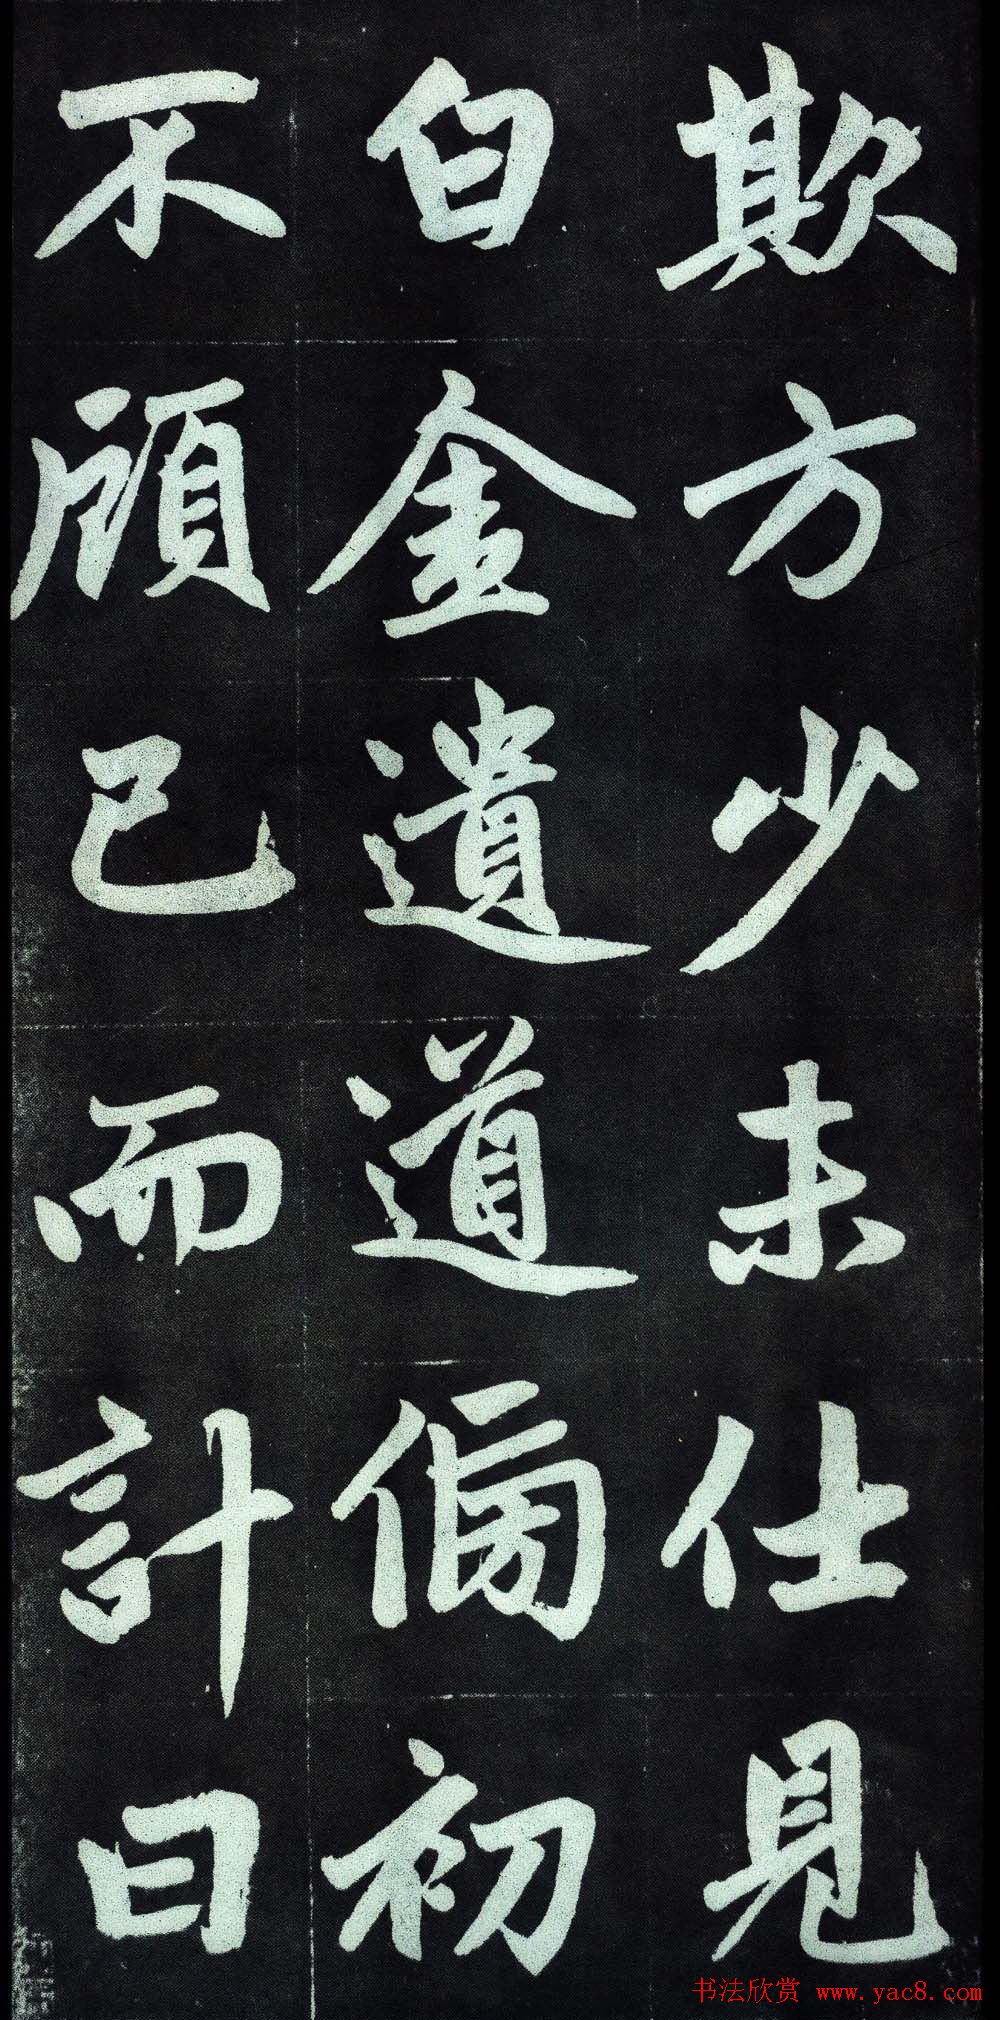 欺方少未仕見
白金遺道傍初
不顧已而計曰
书法欣赏 www.yac8.com